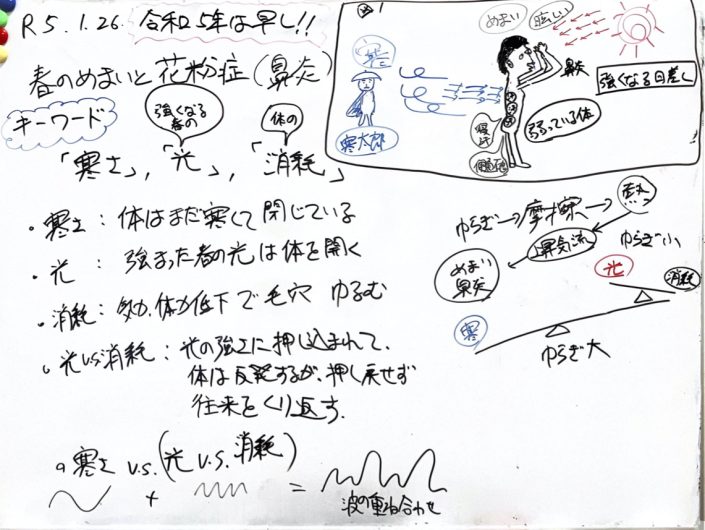 R5.1.26. 令和5年は早し!!
春のめまいと花粉症(鼻炎)
キーワード
強くなる
春の
体の
「寒さ」,「光」,「消耗」
・寒さ:体はまだ寒くて閉じている
・光:強まった春の光は体を開く
・消耗:気力、体力低下で毛穴ゆるむ
・光vs消耗:光の強さに押し込まれて、
体は反発するが、押し戻せず
往来をくり返す。
。寒さ v.s.(光 v.s. 消耗)
+ =
波の重ね合わせ
めまい
眩しい
鼻炎
強くなる日差し
弱っている体
寒太郎
ゆらぎ→摩擦→熱
上昇気流
めまい
鼻炎
ゆらぎ小
光
消耗
寒
ゆらぎ大